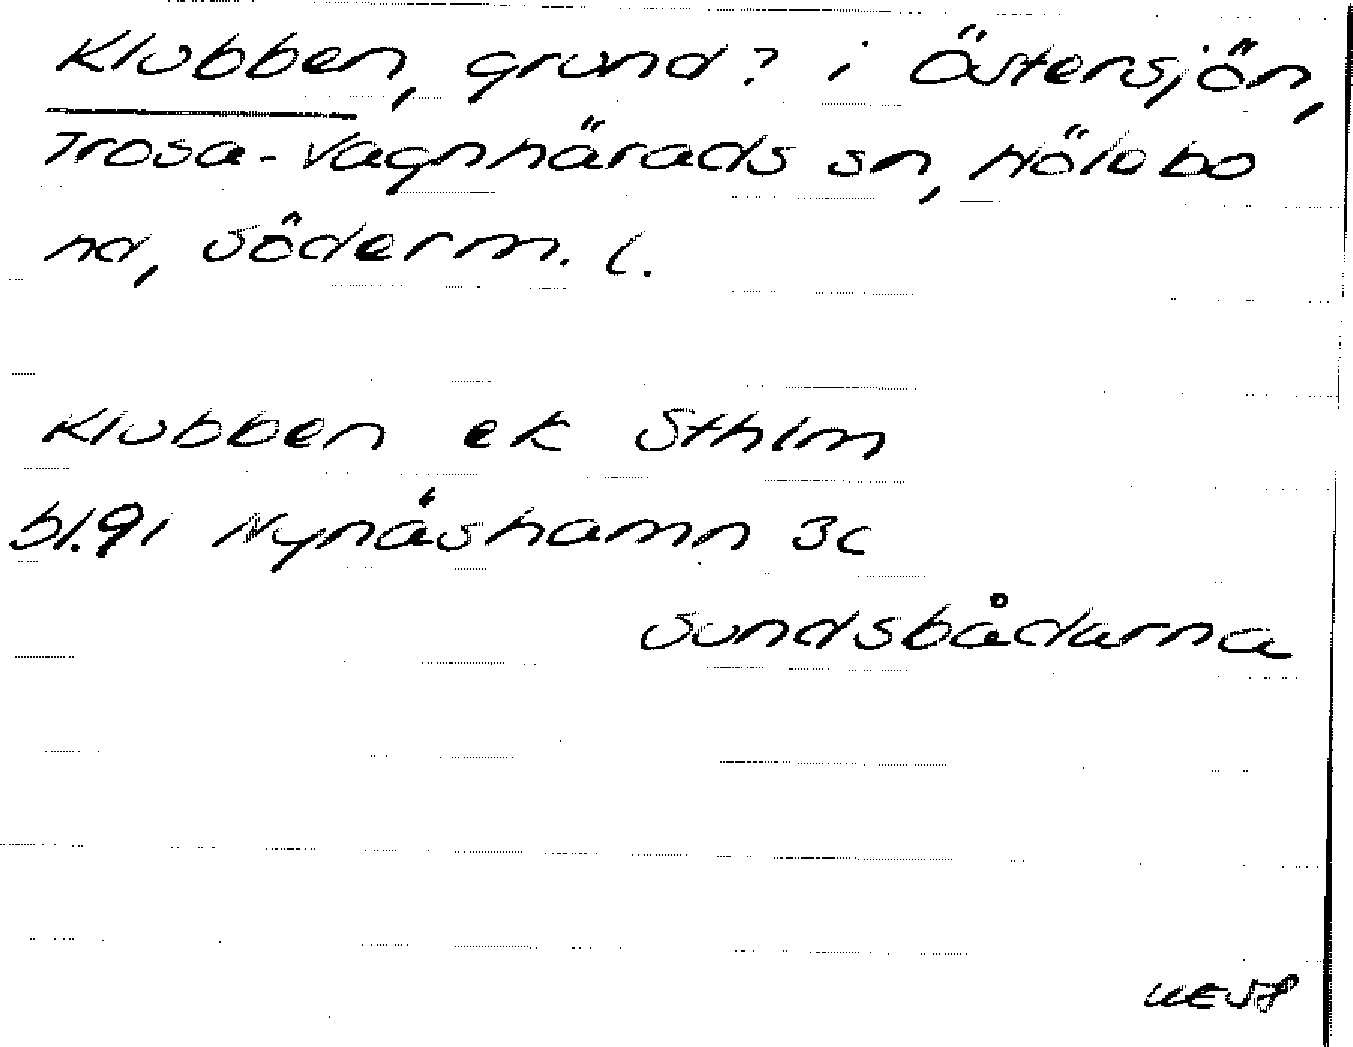 Klubben, grund? i Östersjön,
Trosa-Vagnhärads sn, Hölebo
hd, Söderm. l.
Klubben ek Sthlm
bl.91 Nynäshamn 3c
Sundsbådarna